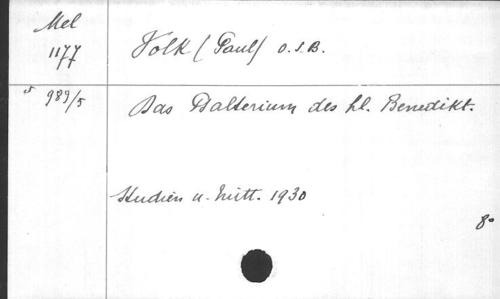 Mel
1177
Volk (Paul) O.S.B.
989/5
Das Psalterium des hl. Benedikt.
Studien u. Mitt. 1930
8°